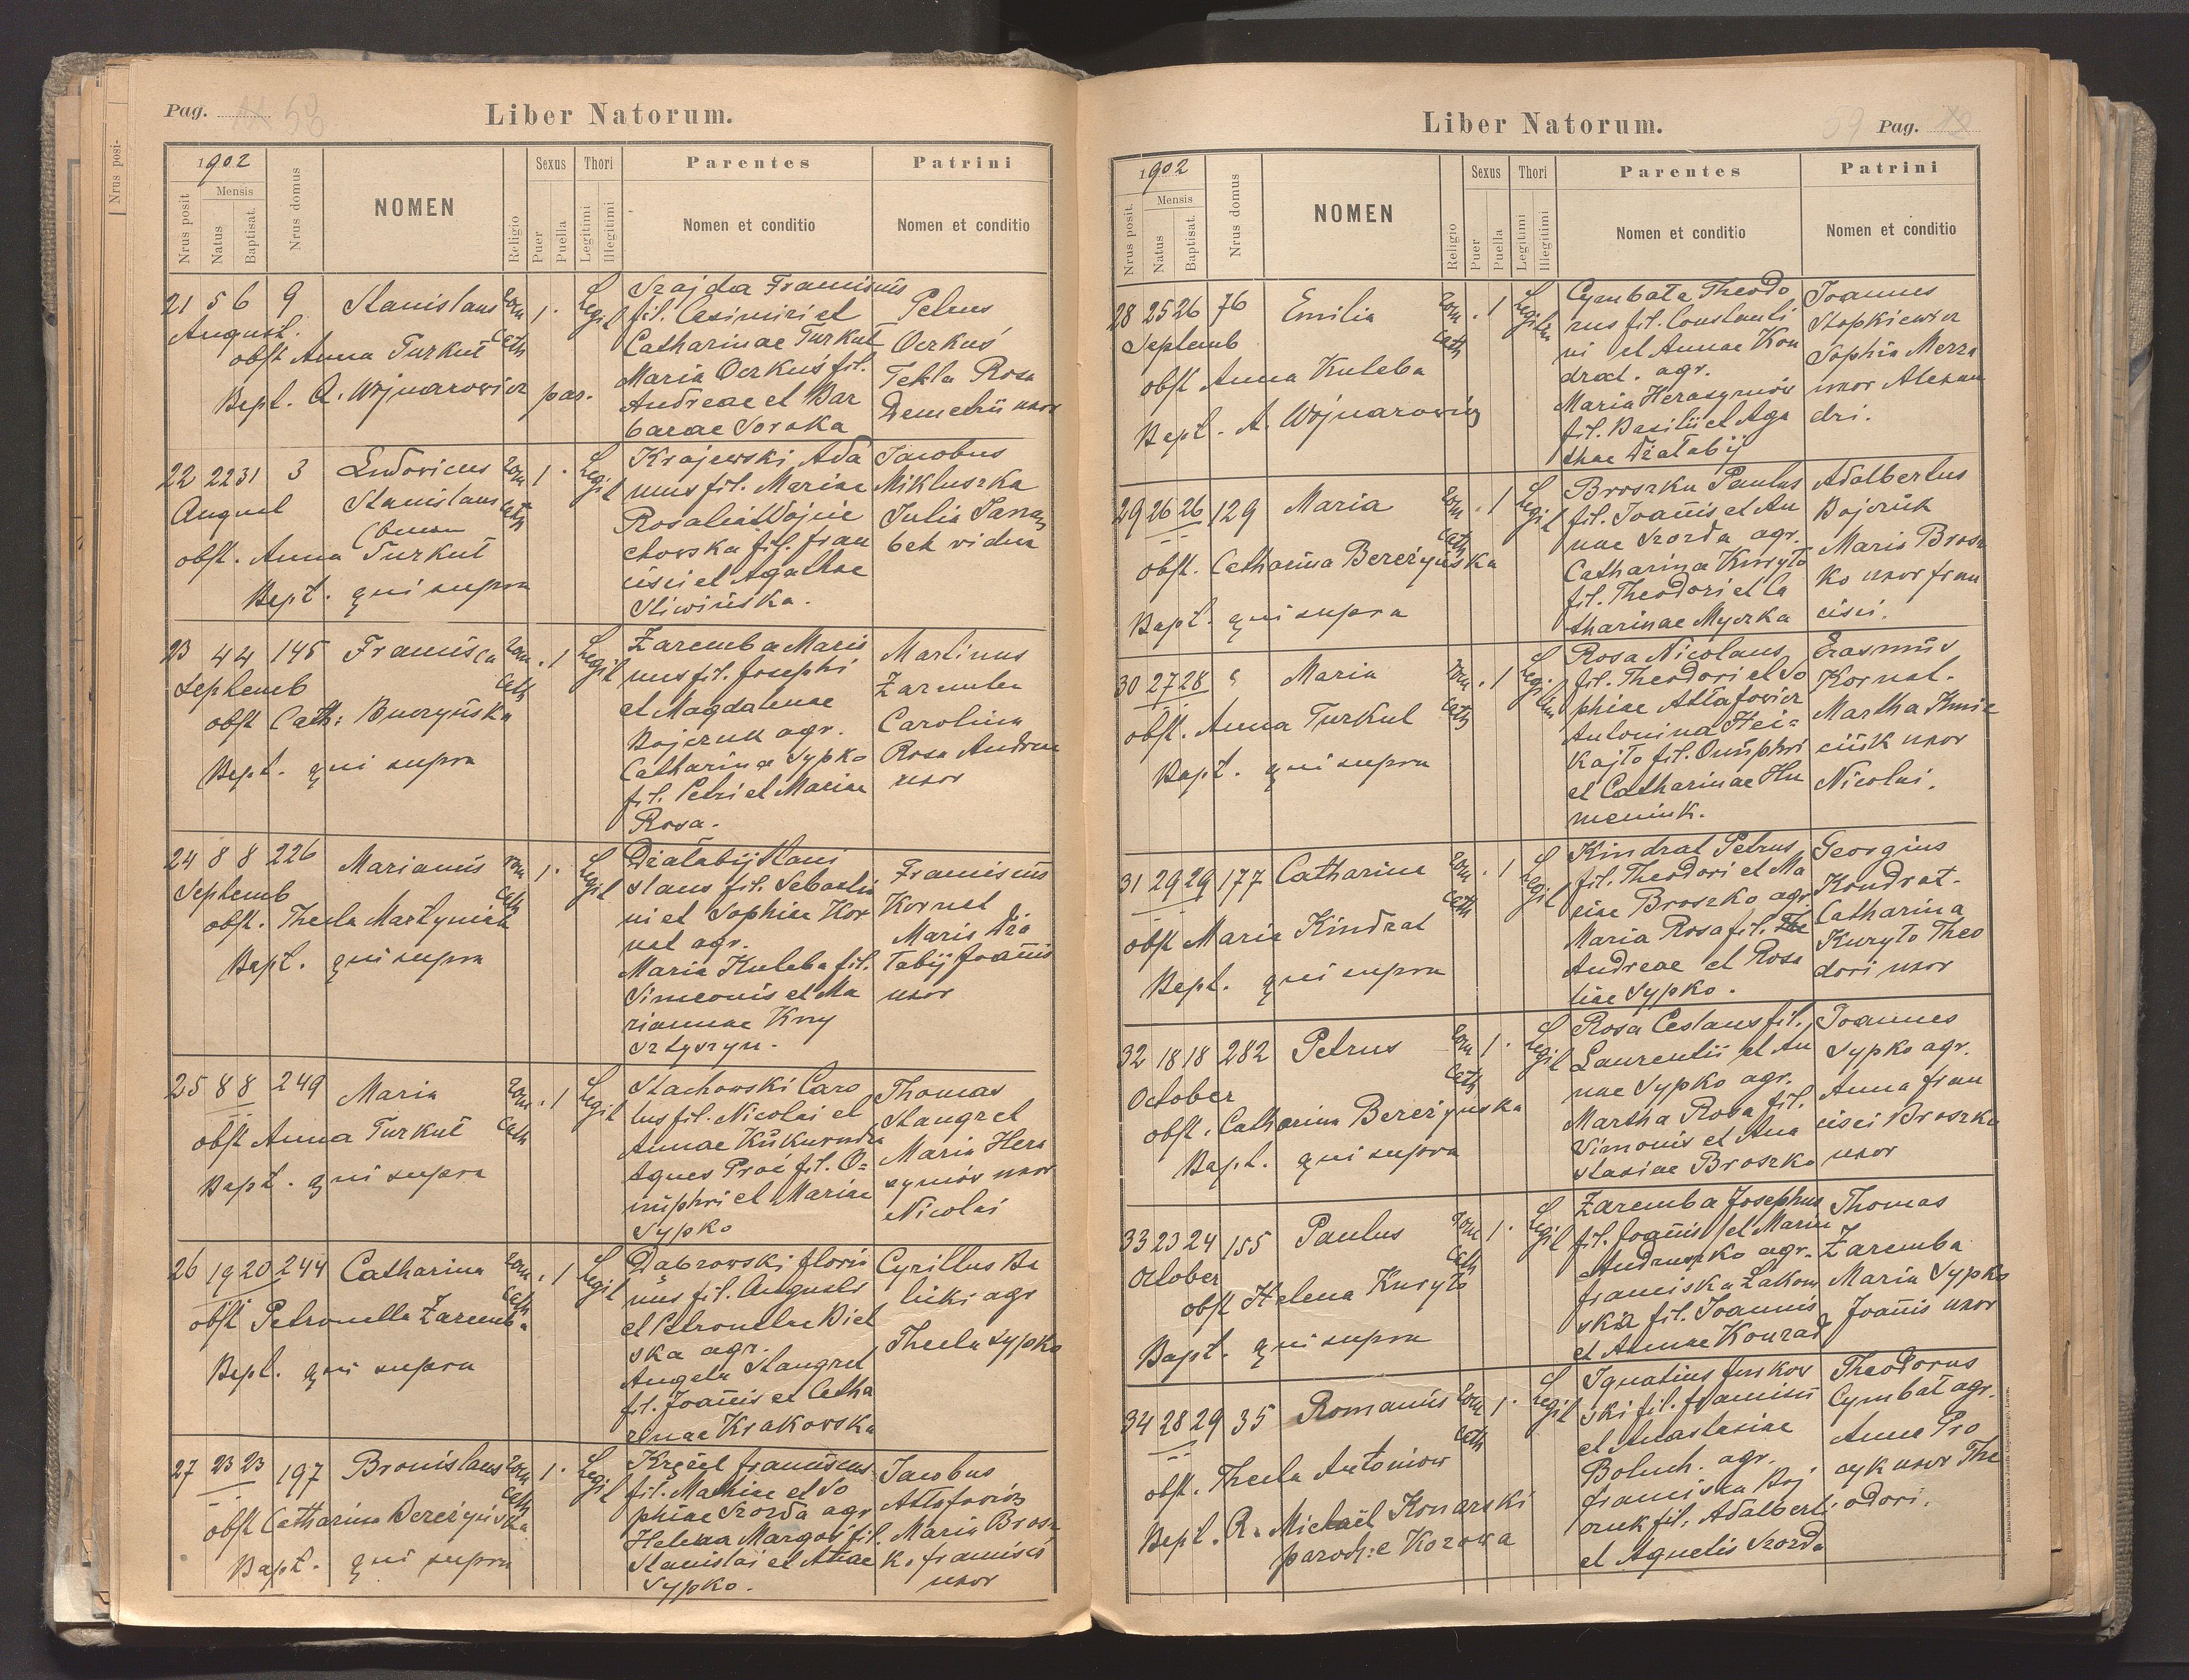 Pag. 58
Liber Natorum.
1902
Nrus posit
Mensis
Natus
Baptisat.
Nrus domus
NOMEN
Religio
Sexus
Puer
Puella
Thori
Legitimi
Illegitimi
Parentes
Nomen et conditio
Patrini
Nomen et conditio
21 5 6 9 Stanislaus rom cath 1 . Legit
August.
obst Anna Turkuł
Bapt. A. Wojnarowicz par.
Szajda Franciscus
fil. Casimiri et
Catharinae Turkuł
Maria Ocrkuś fil.
Andreae et Bar
barae Soroka
Petrus
Ocrkuś
Tekla Rosa
Demetrii uxor
22 22 31 3 Ludovicus rom cath 1 . Legit
August Stanislaus
obst. Anna Turkuł
Bapt. qui supra
Krajewski Ada
mus fil. Mariae
Rosalia Wojcie
chowska fil. Fran
cisci et Agathae
Sliwińska.
Jacobus
Mikluszka
Julia Jaram
bek vidua
23 4 4 145 Francisca rom cath . 1 Legit
Septemb
obst Cath: Buczyńska
Bapt. qui supra
Zaremba Maris
nus fil. Josephi
et Magdalenae
Bojczuk agr.
Catharina Sypko
fil. Petri et Mariae
Rosa.
Martinus
Zaremba
Carolina
Rosa Andreae
uxor
24 8 8 226 Marianus rom cath 1 . Legit
Septemb
obst. Thecla Martyniak
Bapt. qui supra
Działabij Stani
slaus fil. Sebastia
ni et Sophiae Kor
nat agr.
Maria Kuleba fil.
Simeonis et Ma
riannae Kry
sztyszyn.
Franciscus
Kornat
Maria Dzia
łabij Joannis
uxor
25 8 8 249 Maria rom cath . 1 Legit
obst Anna Turkuł
Bapt. qui supra
Stachowski Caro
lus fil. Nicolai et
Annae Kukurudza
Agnes Proć fil. O=
nuphri et Mariae
Sypko
Thomas
Stangret
Maria Hera
symów uxor
Nicolai
26 19 20 244 Catharina rom cath . 1 Legit
obst Petronella Zaremba
Bapt. qui supra
Dąbrowski Flori
nus fil. Augusti
et Petronelae Biel
ska agr.
Angela Stangret
fil. Joannis et Catha
rinae Krakowska
Cyrillus Ba
licki agr
Thecla Sypko
27 23 23 197 Bronislaus rom cath 1 . Legit
obst Catharina Bereżyńska
Bapt. qui supra
Kręcił Franciscus
fil. Mathiae et So
phiae Szozda agr
Helena Margoś fil.
Stanislai et Annae
Sypko.
Jacobus
Attafowicz
Maria Brosz
ko Francisci
uxor
Liber Natorum.
59 Pag.
1902
Nrus posit.
Mensis
Natus
Baptisat.
Nrus domus
NOMEN
Religio
Sexus
Puer
Puella
Thori
Legitimi
Illegitimi
Parentes
Nomen et conditio
Patrini
Nomen et conditio
28 25 26 76 Emilia rom cath . 1 Legit
Septemb
obst Anna Kuleba
Bapt. A. Wojnarowicz
Cymbała Theodo
rus fil. Constanti
ni et Annae Kon
drat. agr.
Maria Herasymów
fil. Basilii et Aga
thae Działabij
Joannes
Stopkiewicz
Sophia Merza
uxor Alexan
dri.
29 26 26 129 Maria rom cath . 1 Legit
obst. Catharina Bereżyńska
Bapt. qui supra
Broszko Paulus
fil. Joannis et An
nae Szozda agr.
Catharina Kuryło
fil. Theodori et Ca
tharinae Mycka
Adalbertus
Bojczuk
Maria Brosz
ko uxor Fran
cisci.
30 27 28 Maria rom cath . 1 Legi
obst. Anna Turkuł
Bapt. qui supra
Rosa Nicolaus
fil. Theodori et So
phiae Attafowicz
Antonina Hei=
kajło fil. Onuphri
et Catharinae Hu
meniuk.
Erasmus
Kornat.
Martha Kmie
ciik uxor
Nicolai.
31 29 29 177 Catharina rom cath . 1 Legit
obst Maria Kindrat
Bapt. qui supra
Kindrat Petrus
fil. Theodori et Ma
riae Broszko agr.
Maria Rosa fil. The
Andreae et Rosa
liae Sypko.
Georgius
Kondrat.
Catharina
Kuryło Theo
dori uxor
32 18 18 282 Petrus rom cath 1 . Legit
October
obst. Catharina Bereżyńska
Bapt. qui supra
Rosa Ceslaus fil.
Laurentii et An
nae Sypko agr.
Martha Rosa fil.
Simonis et Ana
stasiae Broszko
Joannes
Sypko agr.
Anna Fran
cisci Broszko
uxor
33 23 24 155 Paulus rom cath 1 . Legit
October
obst Helena Kuryło
Bapt. qui supra
Zaremba Josephus
fil. Joannis et Maria
Andruszko agr.
Franciska Zakom
ska fil. Joannis
et Annae Konrad
Thomas
Zaremba
Maria Sypko
Joannis uxor
34 28 29 35 Romanus rom cath 1 . Legit
obst. Thecla Antoniow
Bapt. R. Michaël Konarski
paroch: e Kozowa
Ignatius Junkow
ski fil. Francisci
et Anastasiae
Boluch. agr.
Francisca Boj
czuk fil. Adalberti
et Agnetis Szozda
Theodorus
Cymbał agr.
Anna Pro
cyk uxor The
odori.